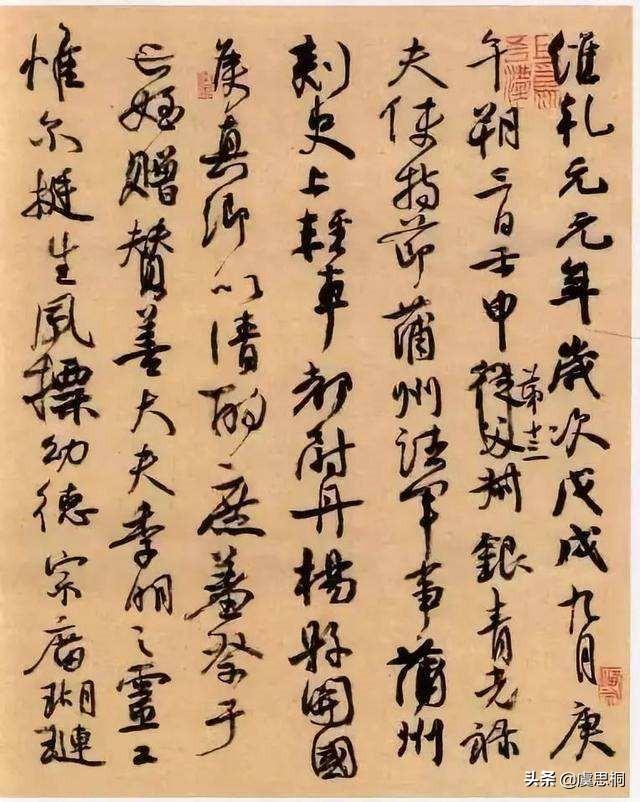 維乾元元年歲次戊戌九月庚
午朔三日壬申從父叔銀青光祿
第十三
夫使持節蒲州諸軍事蒲州
刺史上輕車都尉丹楊縣開國
侯真卿以清酌庶羞祭于
亡姪贈贊善大夫季明之靈曰
惟爾挺生夙摽幼德宗廟瑚璉
头条 @虞思桐